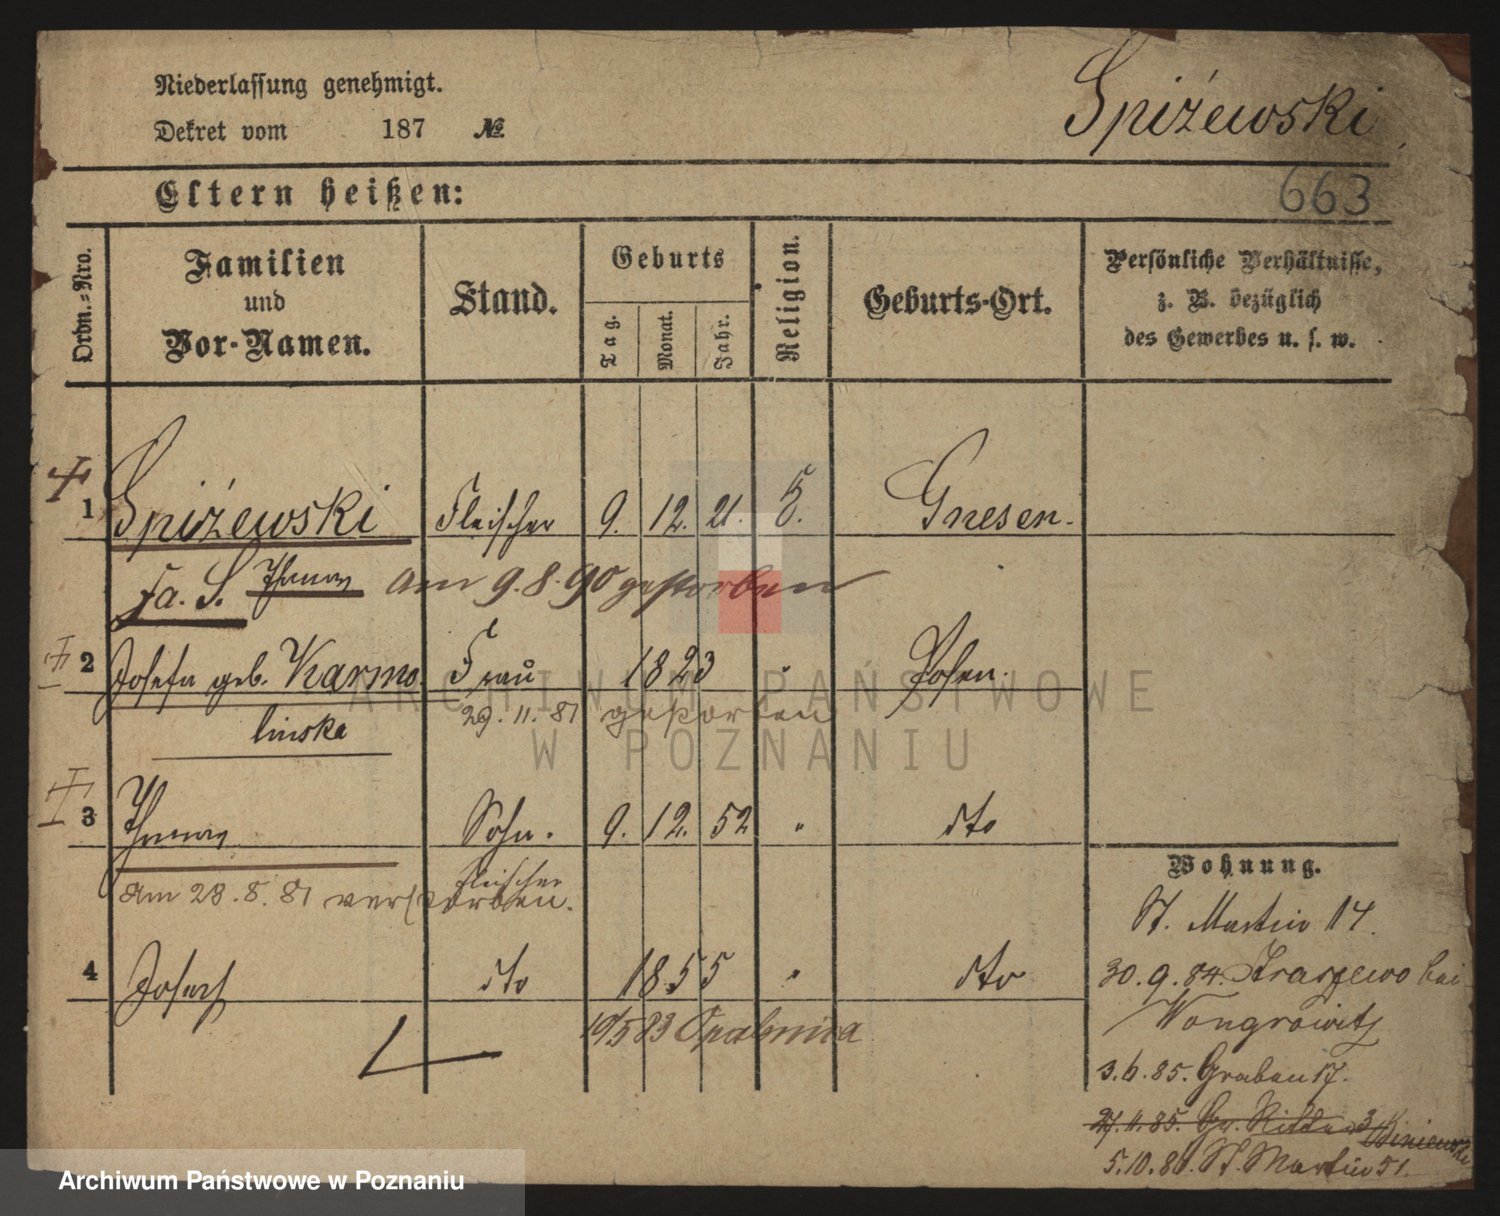 Niederlassung genehmigt.
Dekret vom 187 №
Spiżewski
Eltern heißen:
663
Ordn.=Nro.
Familien und Vor-Namen.
Stand.
Geburts
Tag. Monat. Jahr.
Religion.
Geburts-Ort.
Persönliche Verhältnisse, z. B. bezüglich des Gewerbes u. s. w.
1 Spiżewski Fleischer 9. 12. 21. Gnesen.
Fa. S. Thomas am 9.8.90 gestorben
2 Josefa geb. Karmo Frau 1823 " Posen.
linska 29.11.81 gestorben
3 Thomas Sohn. 9. 12. 52 " dto
Fleischer
Am 28.8.81 verstorben.
4 Josef dto 1855 " dto
19/5 83 Opalenica
Wohnung.
St. Martin 14.
30.9.84. bei
Wongrowitz
3.6.85. Graben 17.
27.11.85. Gr. Ritter 3
5.10.86. St. Martin 51.
ARCHIWUM PAŃSTWOWE
W POZNANIU
Archiwum Państwowe w Poznaniu